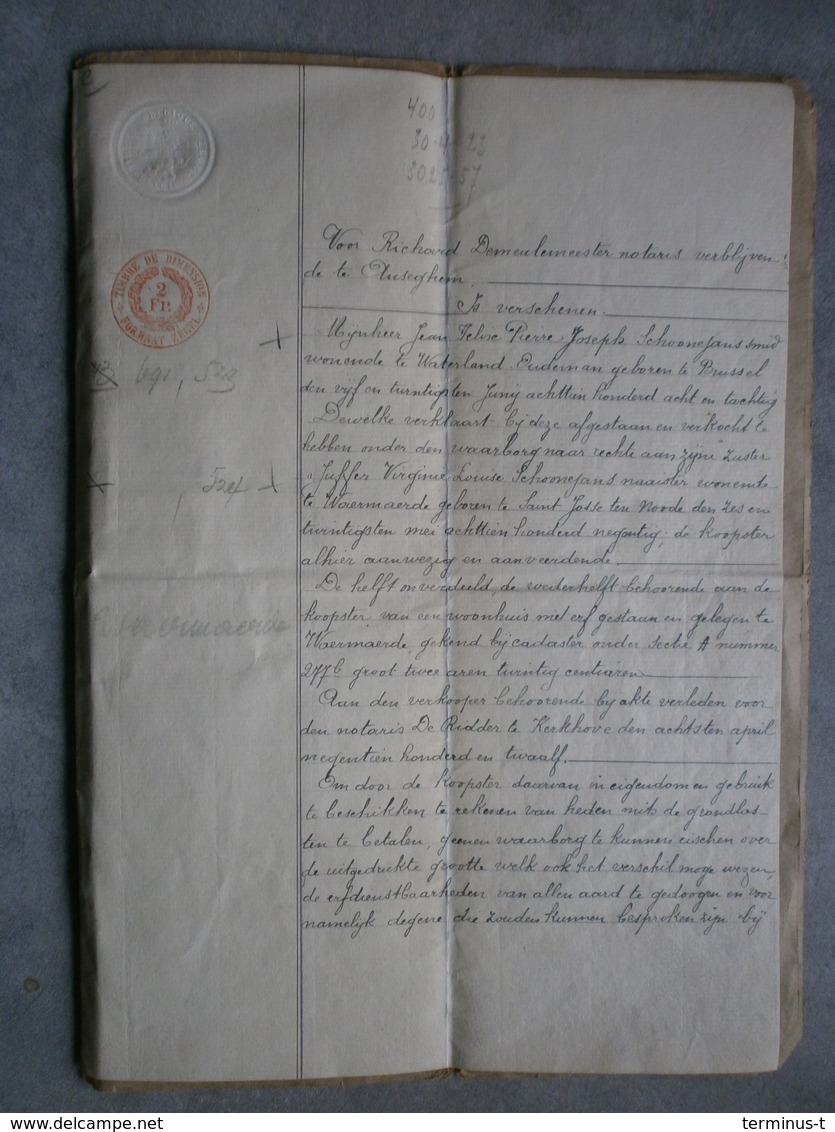 400
30-4-23
3025-57
TIMBRE DE DIMENSION
2
FR.
FORMAAT ZEGEL
Voor Richard Demeulemeester notaris verblijven
de te Anseghem.
Is verschenen
Mijnheer Jean Felix Pierre Joseph Schoonejans smid
wonende te Waterland Oudeman geboren te Brussel
den vijf en twintigsten Junij achttien honderd acht en tachtig
Dewelke verklaart bij deze afgestaan en verkocht te
hebben onder den waarborg naar rechte aan zijne zuster
Juffer Virginie Louise Schoonejans naaister wonende
te Waermaerde geboren te Saint Josse ten Noode den zes en
twintigsten mei achttien honderd negentig, de koopster
alhier aanwezig en aanveerdende
De helft onverdeeld, de wederhelft behoorende aan de
koopster van een woonhuis met erf gestaan en gelegen te
Waermaerde, gekend bij cadaster onder sectie A nummer
277b groot twee aren twintig centiaren
Aan den verkooper behoorende bij akte verleden voor
den notaris De Ridder te Kerkhove den achtsten april
negentien honderd en twaalf.
Om door de koopster daarvan in eigendom en gebruik
te beschikken te rekenen van heden mits de grondlas
ten te betalen, geenen waarborg te kunnen eischen over
de uitgedrukte grootte welk ook het verschil moge wezen,
de erfdienstbaarheden van allen aard te gedoogen en voor
namelijk degene die zouden kunnen besproken zijn bij
529
524
Waermaerde
WWW.DELCAMPE.NET
terminus-t